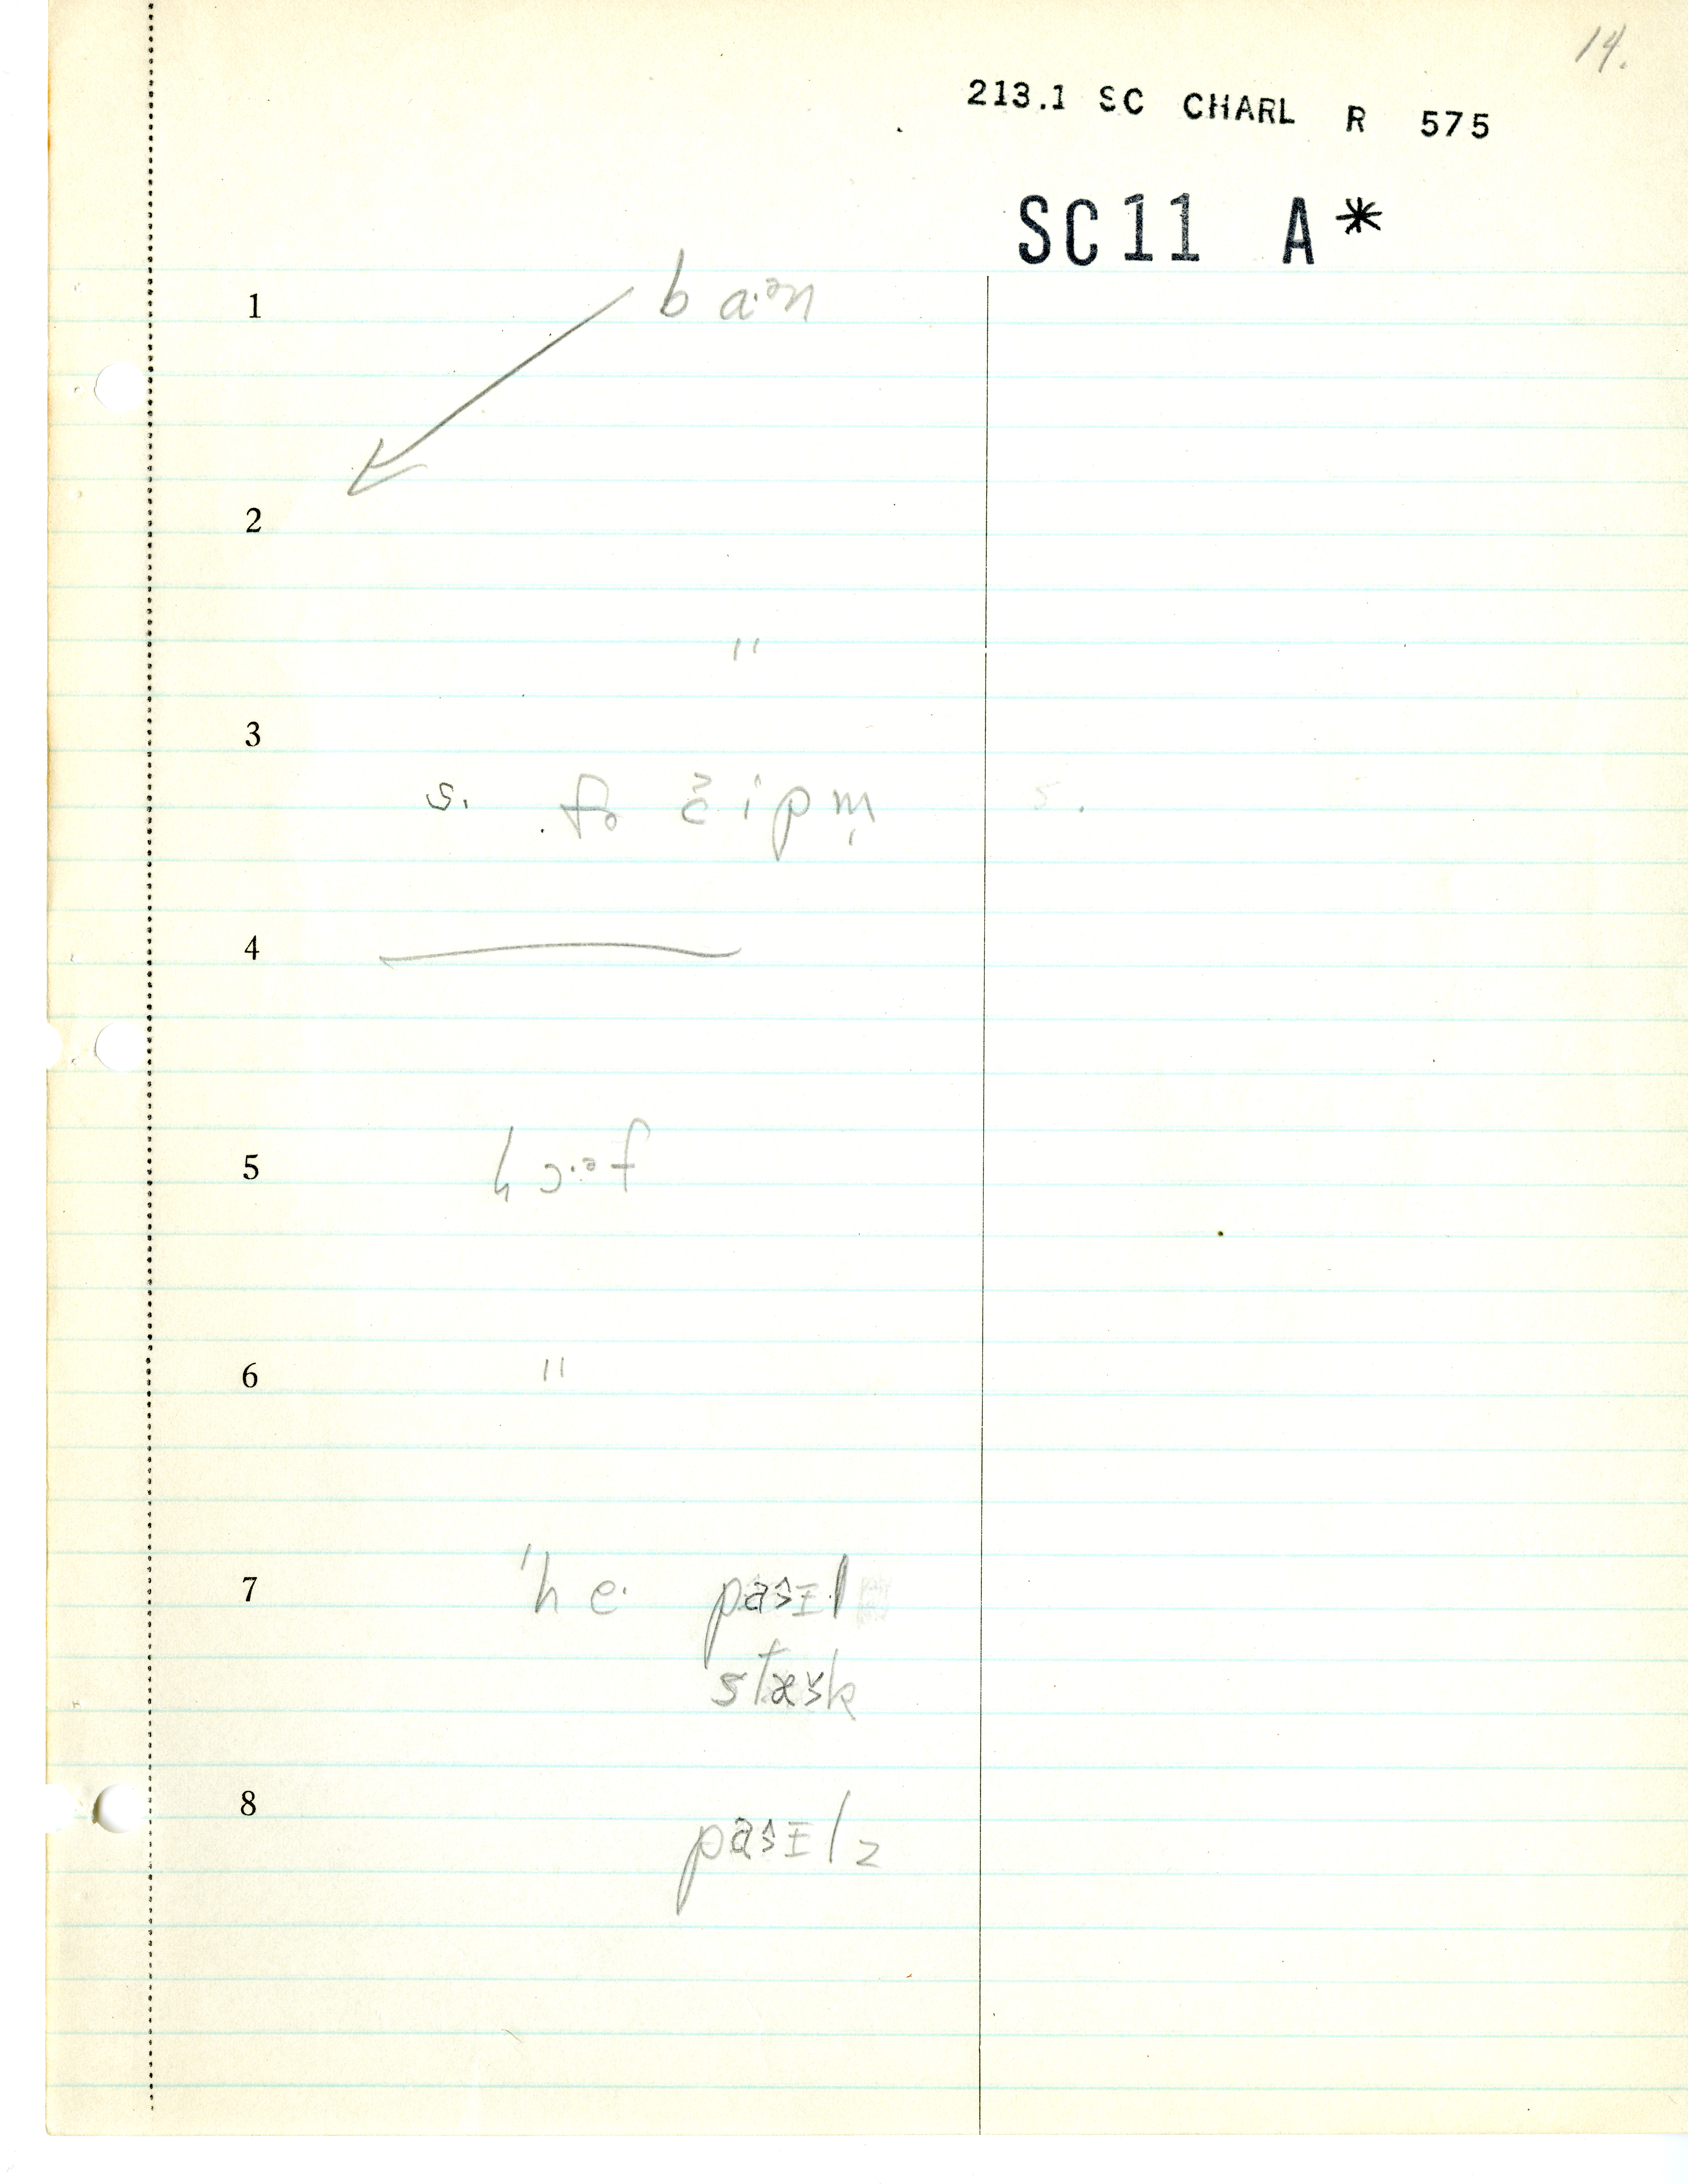 14.
213.1 SC CHARL R 575
SC11 A*
1 ba·ᵊn
2
"
3
s. fɚ čipm̩ s.
4
5 hɔ·ᵊf
6 "
7 'he· pasɪl
stæšk
8
pasɪlz